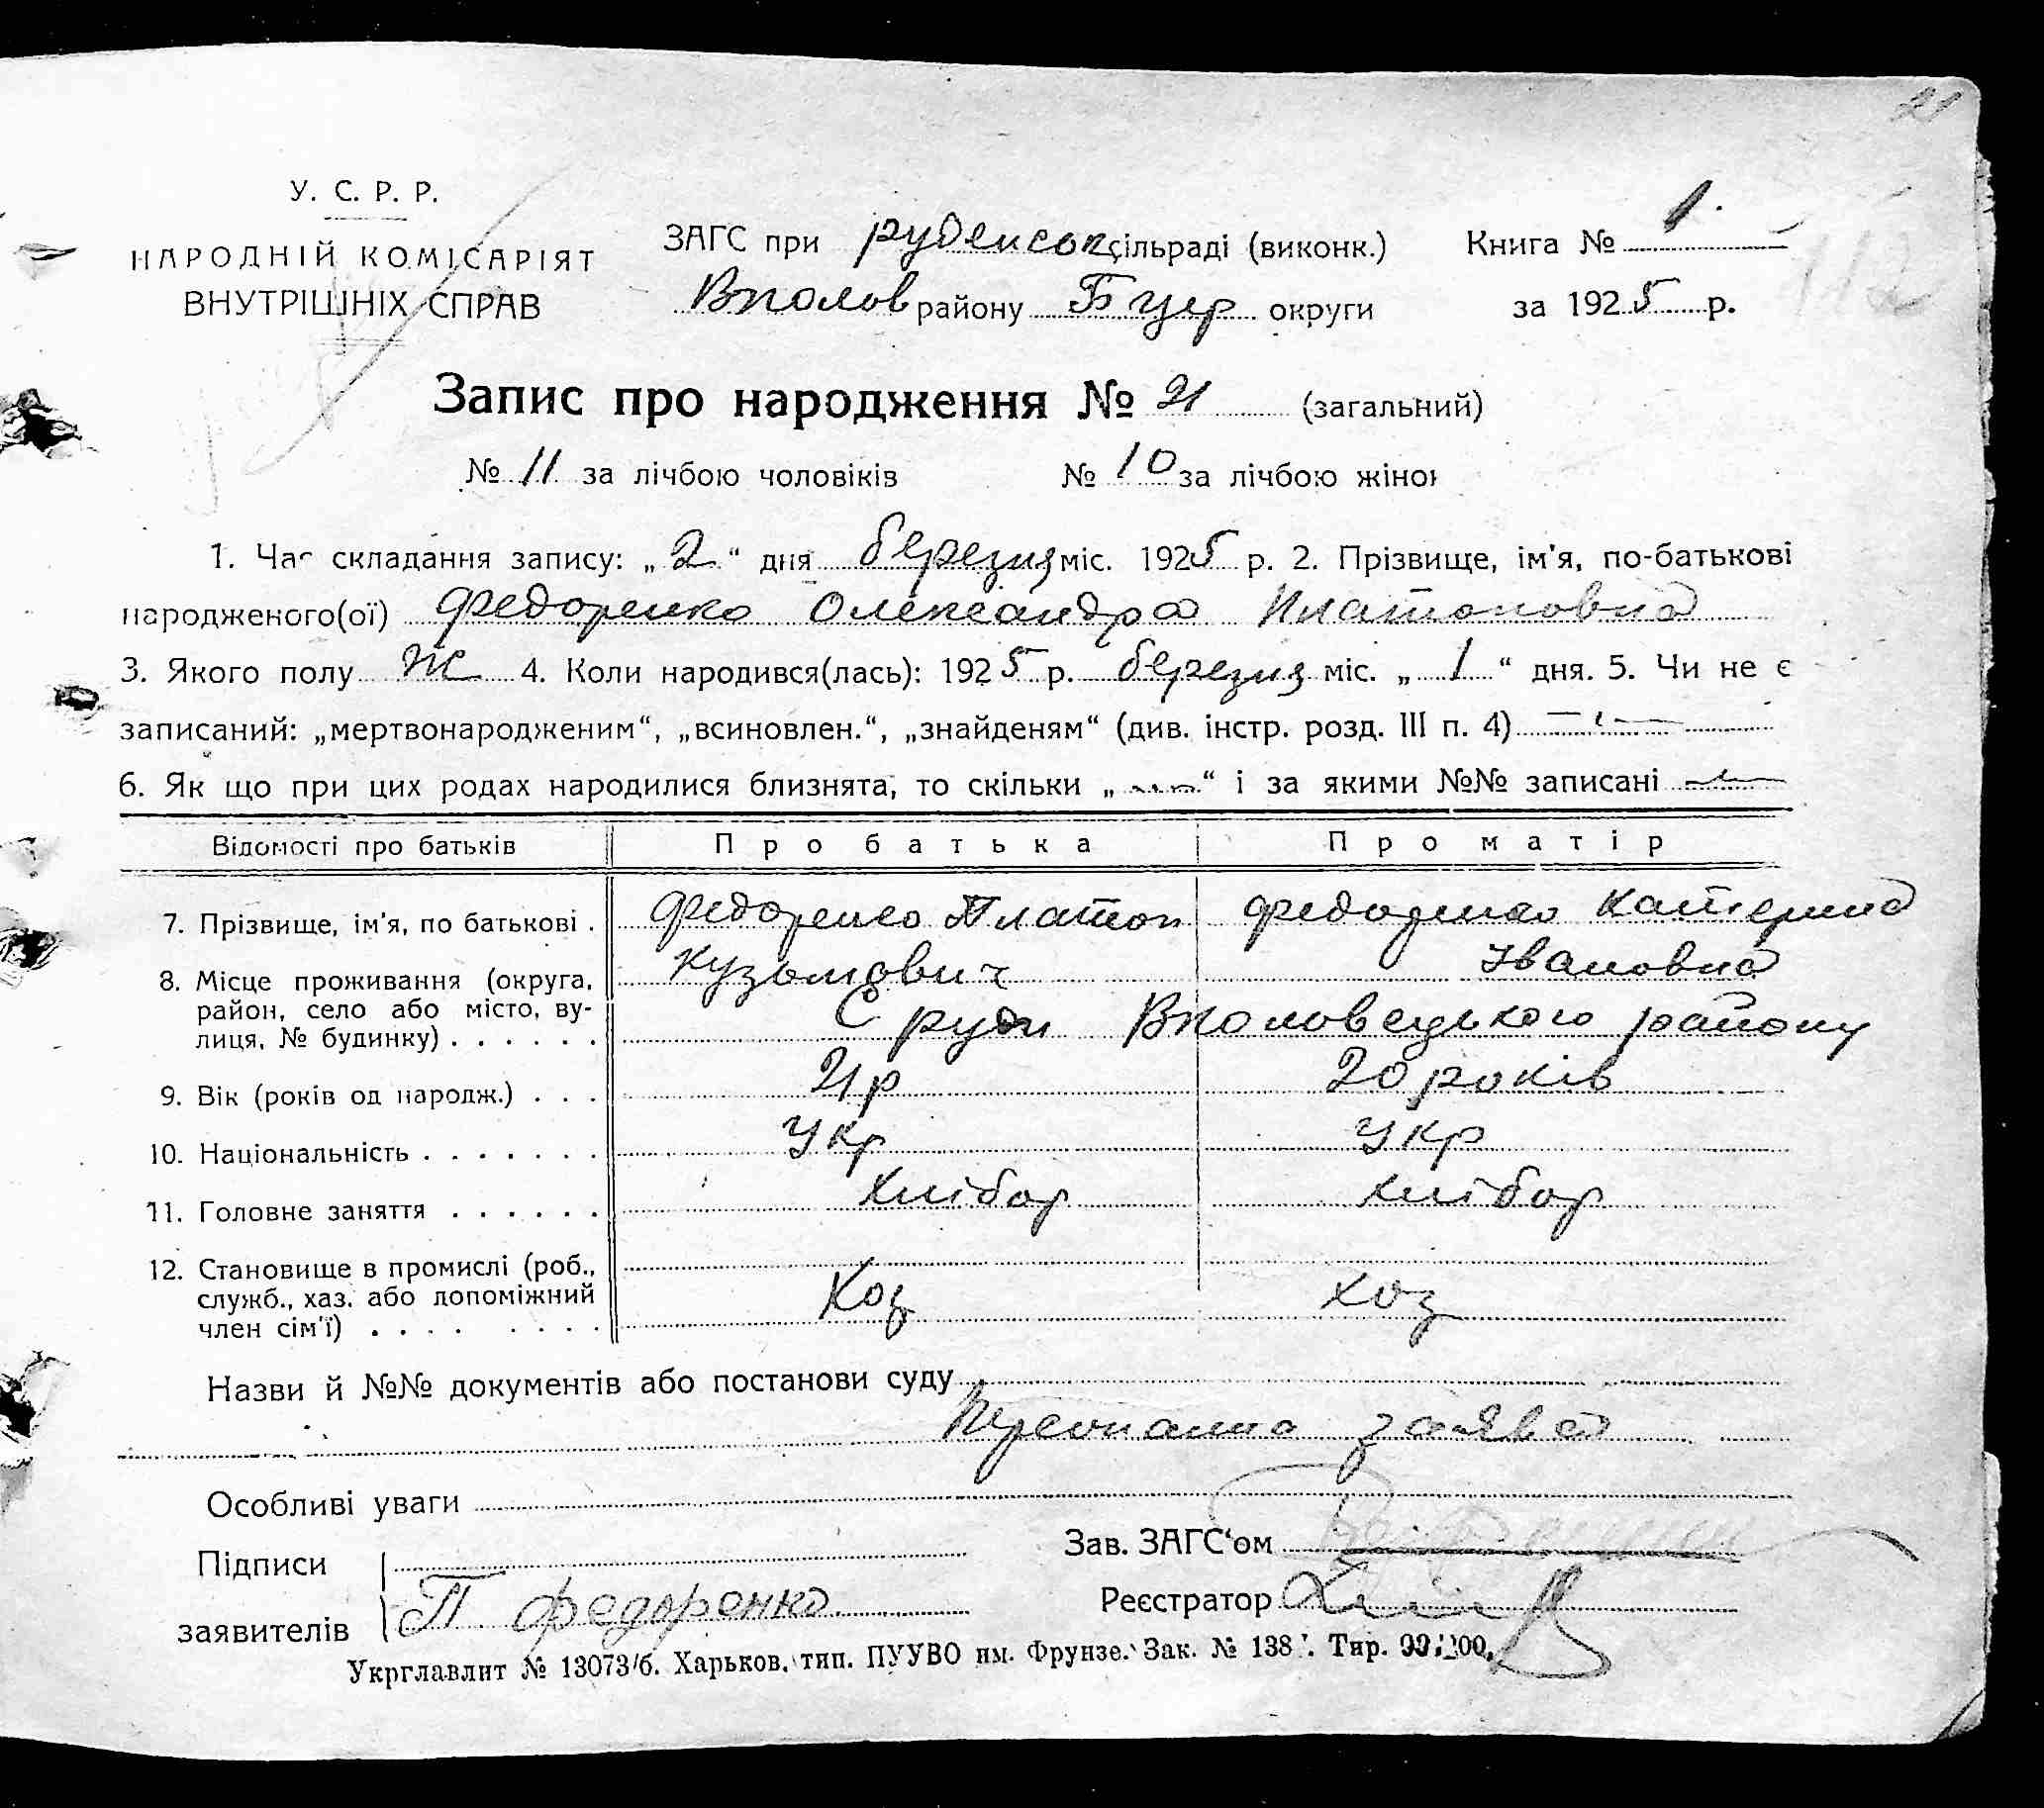 21
У. С. Р. Р.
НАРОДНІЙ КОМІСАРІЯТ
ВНУТРІШНІХ СПРАВ
ЗАГС при руденськ сільраді (виконк.)
Вполов району Б цер округи
Книга № 1.
за 1925 р.
112
Запис про народження № 21 (загальний)
№ 11 за лічбою чоловіків № 10 за лічбою жінок
1. Час складання запису: „2“ дня березня міс. 1925 р. 2. Прізвище, ім'я, по-батькові
народженого(ої) Федоренко Олександра Платоновна
3. Якого полу Ж 4. Коли народився(лась): 1925 р. березня міс. „1“ дня. 5. Чи не є
записаний: „мертвонародженим“, „всиновлен.“, „знайденям“ (див. інстр. розд. III п. 4) —
6. Як що при цих родах народилися близнята, то скільки „—“ і за якими №№ записані —
Відомості про батьків Про батька Про матір
7. Прізвище, ім'я, по батькові . Федоренко Платон Федоренко Катерина
Кузьмович Івановна
8. Місце проживання (округа,
район, село або місто, ву-
лиця, № будинку) . . . . . . С руди Вполовецького району
9. Вік (років од народж.) . . . 21 р 20 років
10. Національність . . . . . . . Укр Укр
11. Головне заняття . . . . . . хлібор хлібор
12. Становище в промислі (роб.,
служб., хаз. або допоміжний
член сім'ї) . . . . . . . . Хоз хоз
Назви й №№ документів або постанови суду
Персонална заява
Особливі уваги
Підписи
заявителів П Федоренко
Зав. ЗАГС‘ом
Реєстратор
Укрглавлит № 13073/б. Харьков, тип. ПУУВО им. Фрунзе. Зак. № 138 . Тир.